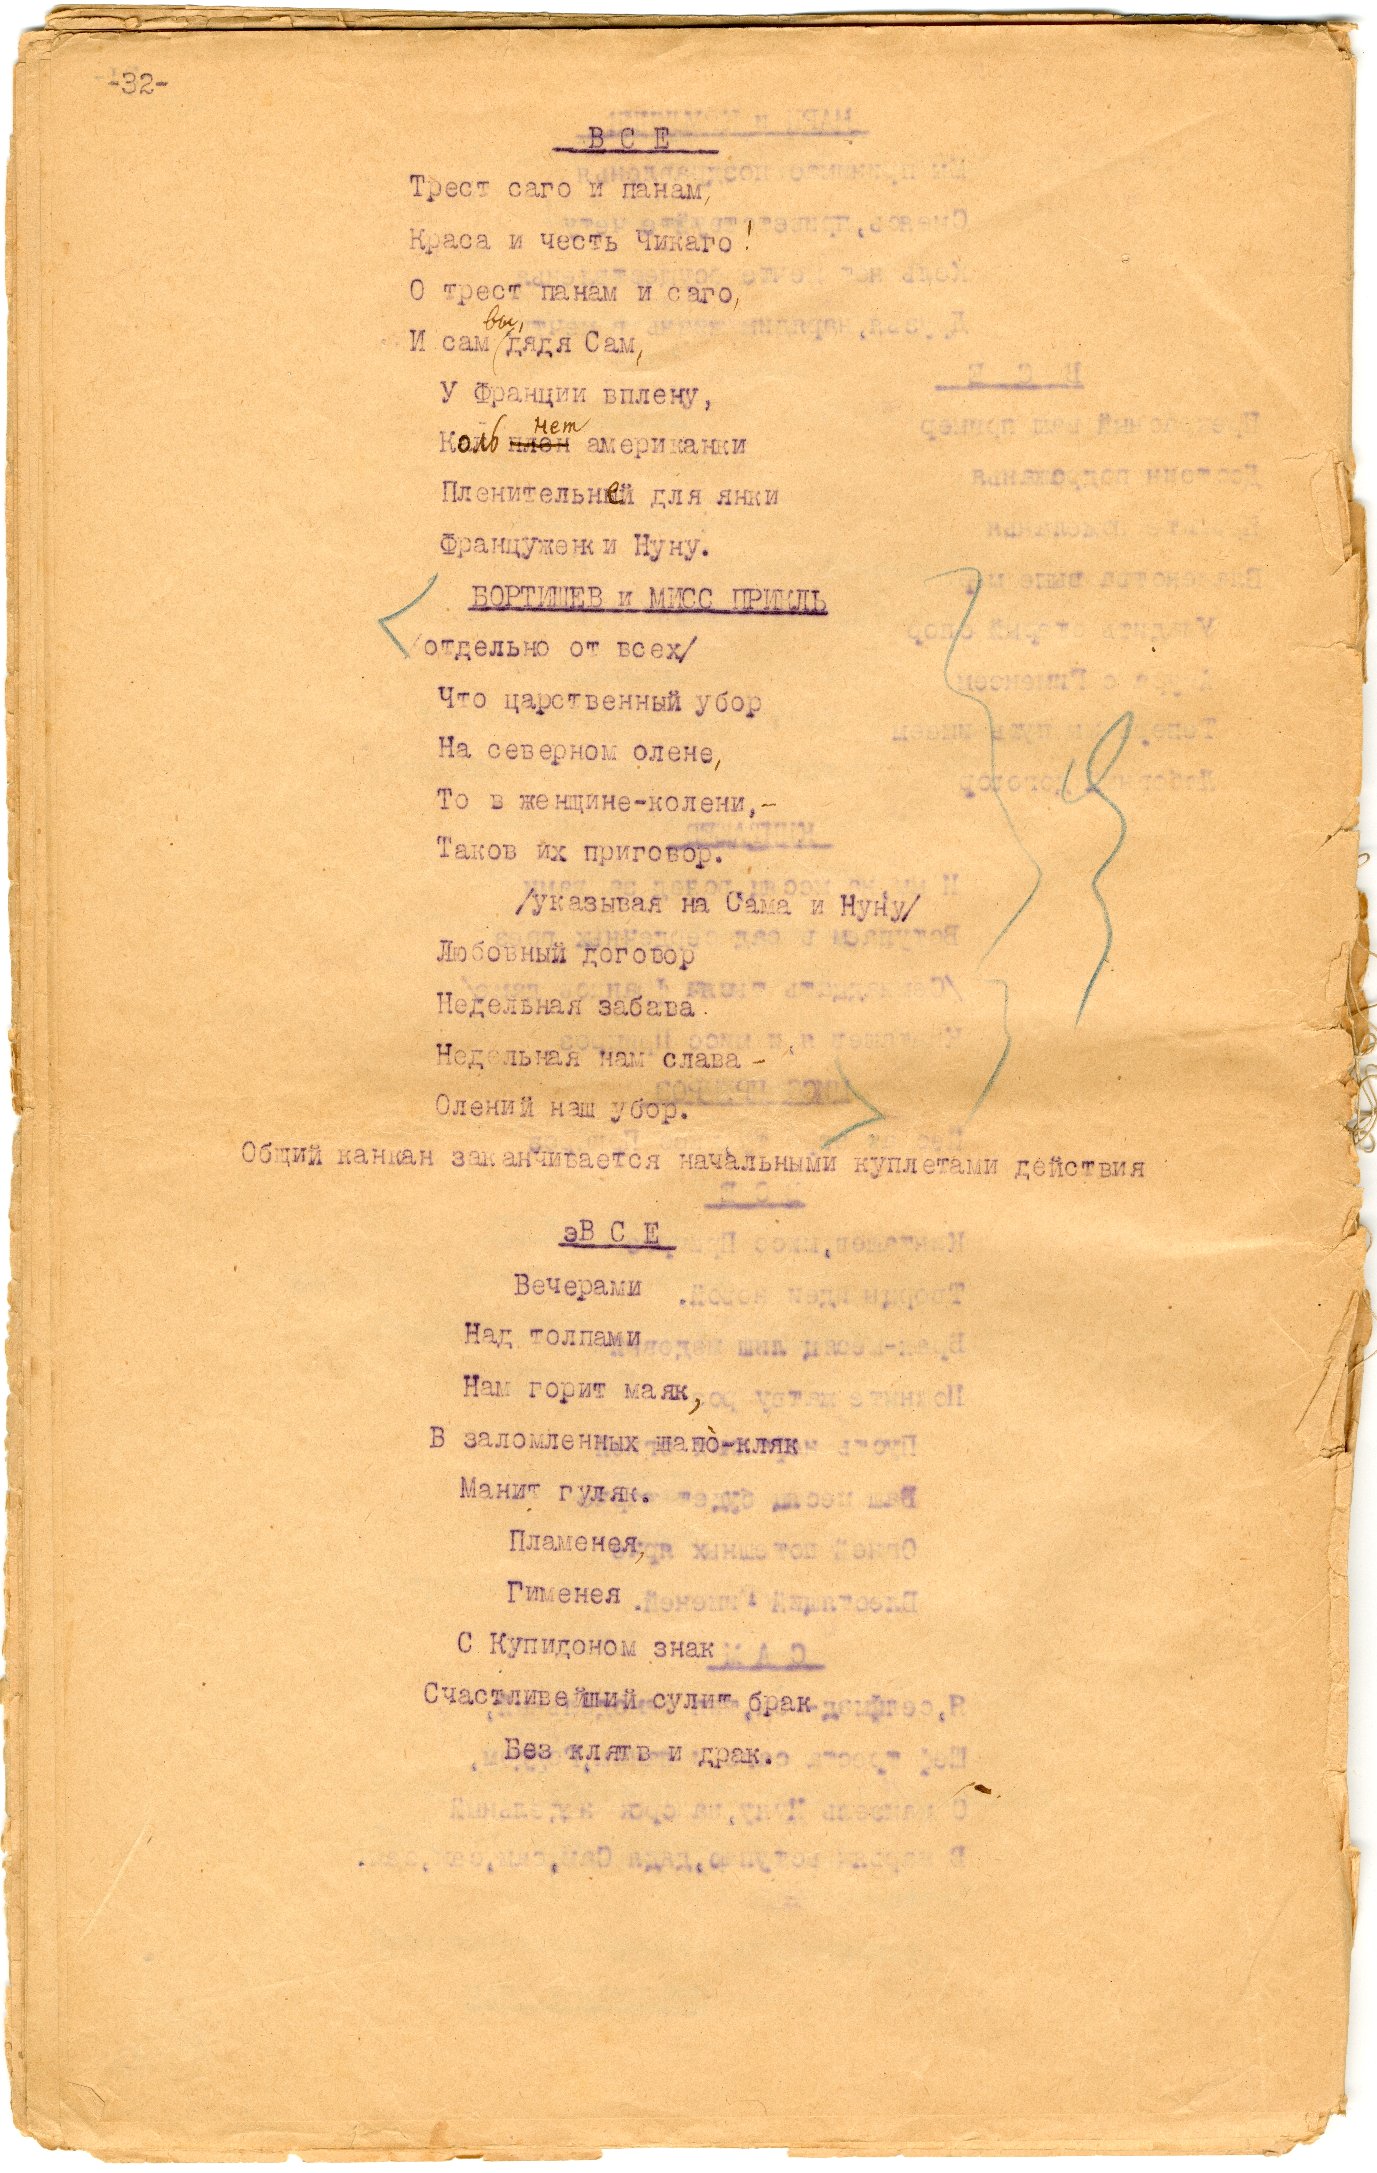 -32-
ВСЕ
Трест саго и панам,
Краса и честь Чикаго!
О трест панам и саго,
И сам вы, дядя Сам,
У Франции вплену,
Коль нет американки
Пленительней для янки
Француженки Нуну.
БОРТИШЕВ и МИСС ПРИКЛЬ
/отдельно от всех/
Что царственный убор
На северном олене,
То в женщине-колени,-
Таков их приговор.
/указывая на Сама и Нуну/
Любовный договор
Недельная забава
Недельная нам слава -
Олений наш убор.
Общий канкан заканчивается начальными куплетами действия
эВ С Е
Вечерами
Над толпами
Нам горит маяк,
В заломленных шапо-кляк
Манит гуляк.
Пламенея,
Гименея
С Купидоном знак
Счастливейший сулит брак
Без клятв и драк.